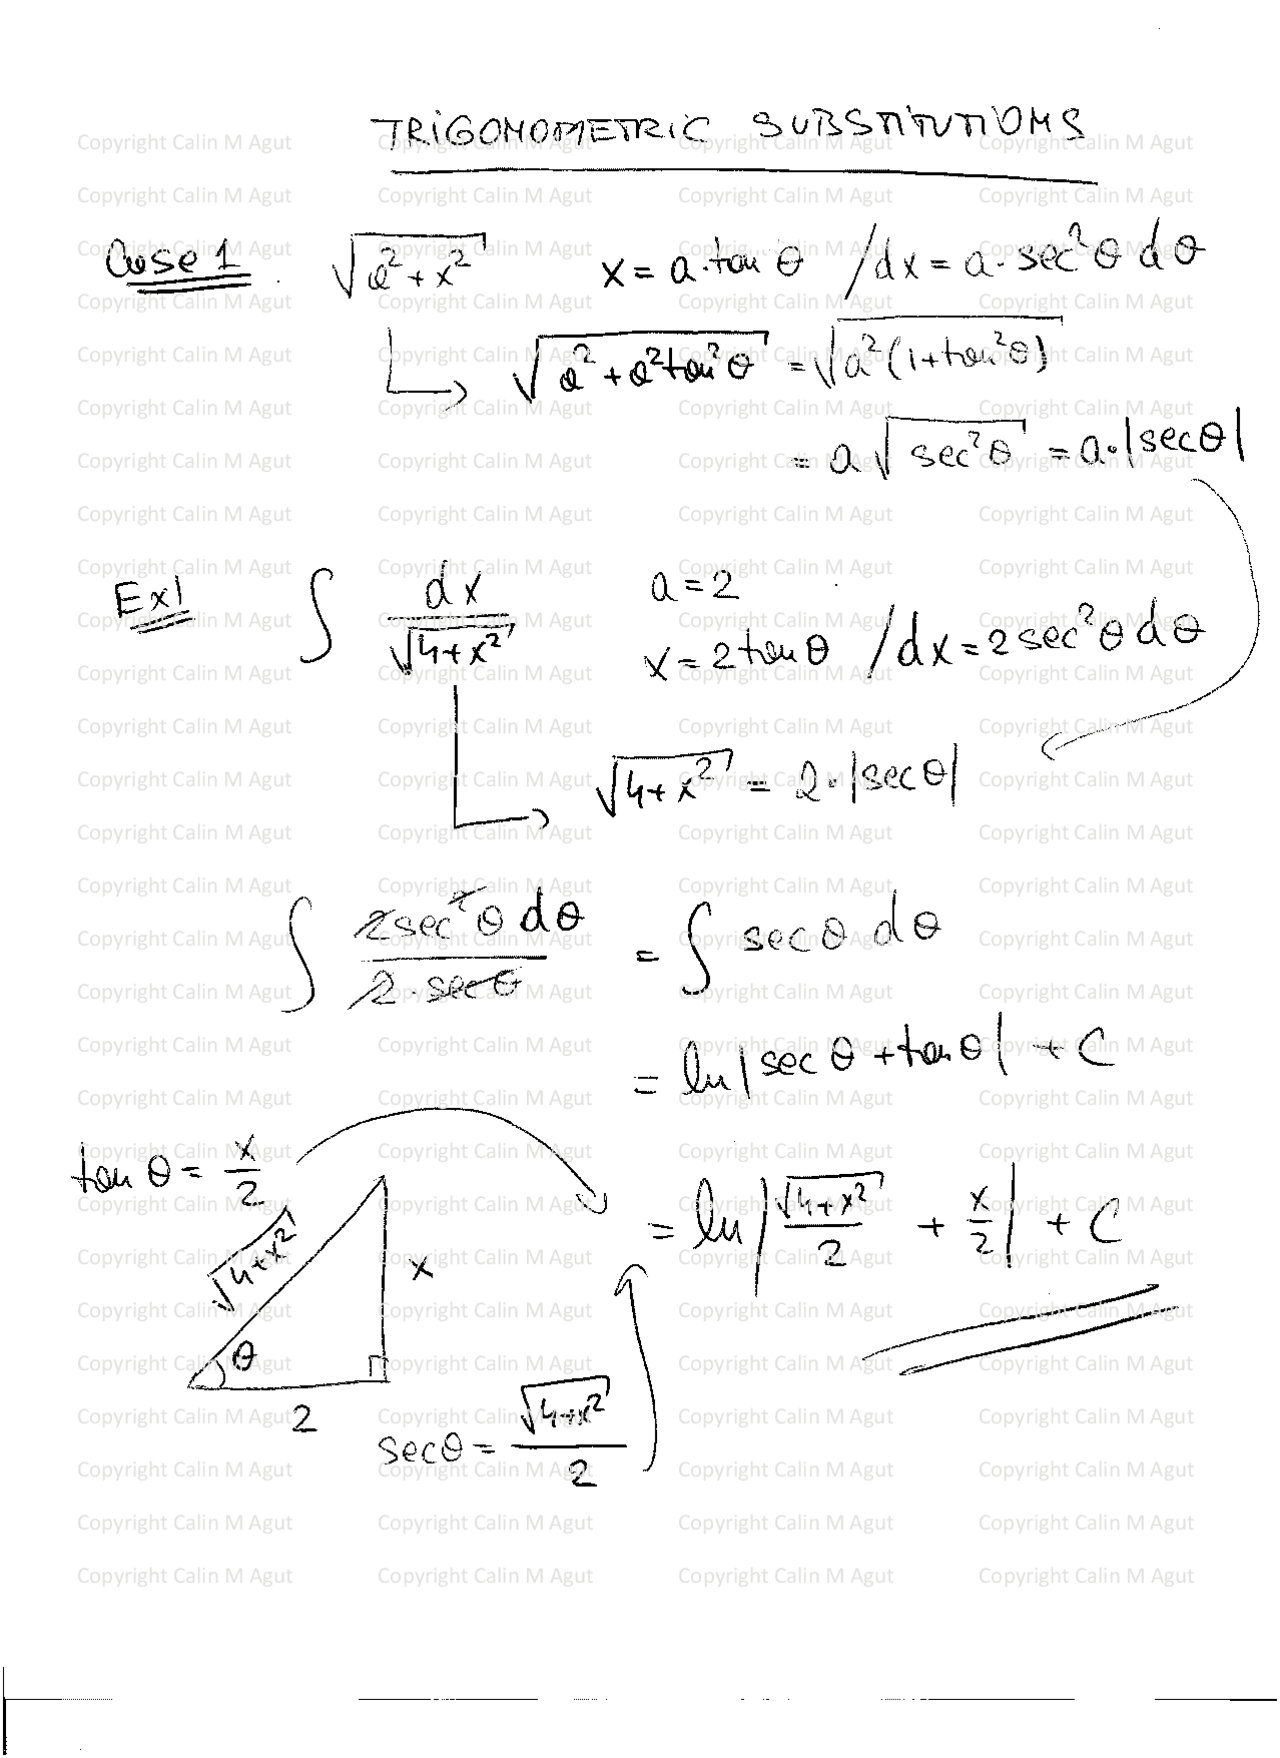 TRIGONOMETRIC SUBSTITUTIONS
Case 1 √(a²+x²) x = a·tan θ / dx = a·sec²θ dθ
√(a²+a²tan²θ) = √(a²(1+tan²θ))
= a√(sec²θ) = a·|secθ|
Ex1 ∫ dx/√(4+x²) a=2
x=2tanθ / dx=2sec²θ dθ
√(4+x²) = 2·|secθ|
∫ 2sec²θ dθ / 2·secθ = ∫ secθ dθ
= ln|secθ+tanθ| + C
tan θ = x/2
= ln|√(4+x²)/2 + x/2| + C
√(4+x²)
x
θ
2
secθ = √(4+x²)/2
Copyright Calin M Agut